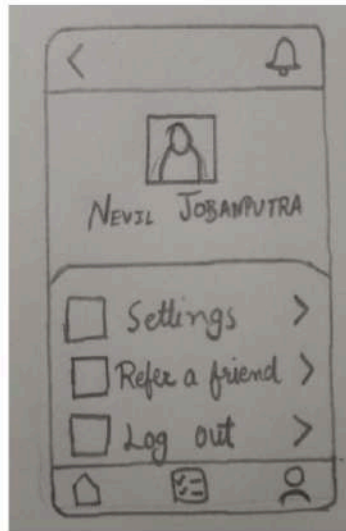 NEVIL JOBANPUTRA
Settings
Refer a friend
Log out